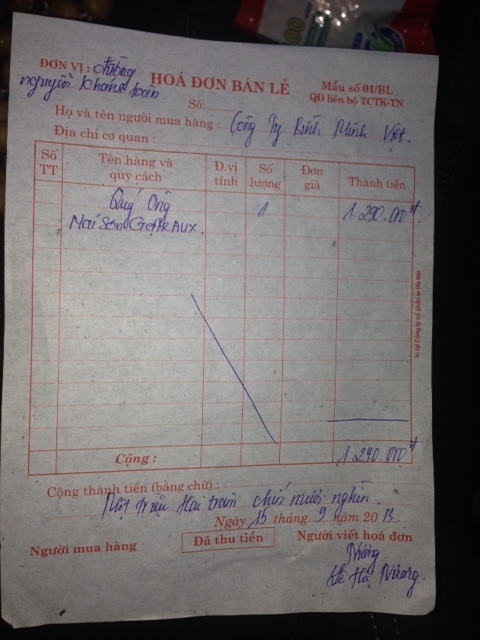 ĐƠN VỊ : đường
nguyễn khánh toàn
HOÁ ĐƠN BÁN LẺ
Số:
Mẫu số 01/BL
QĐ liên bộ TCTK-TN
Họ và tên người mua hàng : Công Ty Bình Minh Việt.
Địa chỉ cơ quan :
Số TT Tên hàng và quy cách Đ.vị tính Số lượng Đơn giá Thành tiền
Quý Ông 1. 1.290.000đ
Mai Sơn
Cộng : 1.290.000đ
Cộng thành tiền (bằng chữ) :
Một triệu Hai trăm chín mươi nghìn.
Ngày 15 tháng 9 năm 2013
Người mua hàng Đã thu tiền Người viết hoá đơn
Nương
Hà Nương.
In tại Công ty cổ phần in Hà Nội